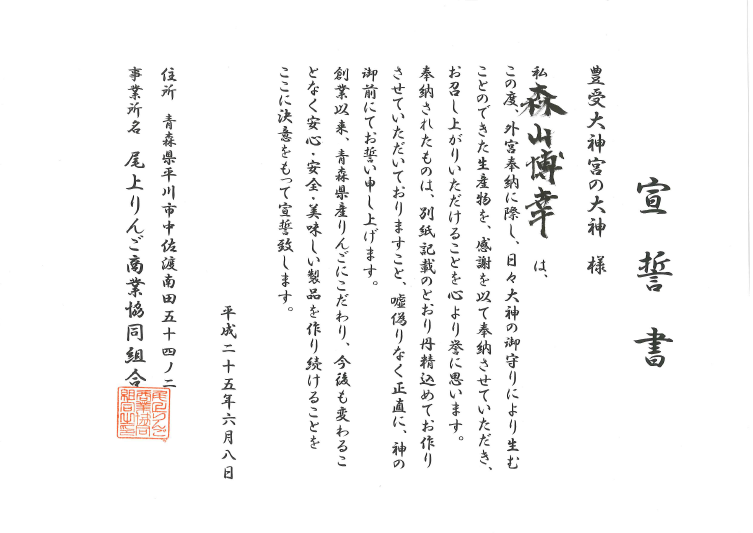 宣誓書
豊受大神宮の大神 様
私 森山博幸 は、
この度、外宮奉納に際し、日々大神の御守りにより生む
ことのできた生産物を、感謝を以て奉納させていただき、
お召し上がりいただけることを心より誉に思います。
奉納されたものは、別紙記載のとおり丹精込めてお作り
させていただいておりますこと、嘘偽りなく正直に、神の
御前にてお誓い申し上げます。
創業以来、青森県産りんごにこだわり、今後も変わるこ
となく安心・安全・美味しい製品を作り続けることを
ここに決意をもって宣誓致します。
平成二十五年六月八日
住所 青森県平川市中佐渡南田五十四ノ二
事業所名 尾上りんご商業協同組合